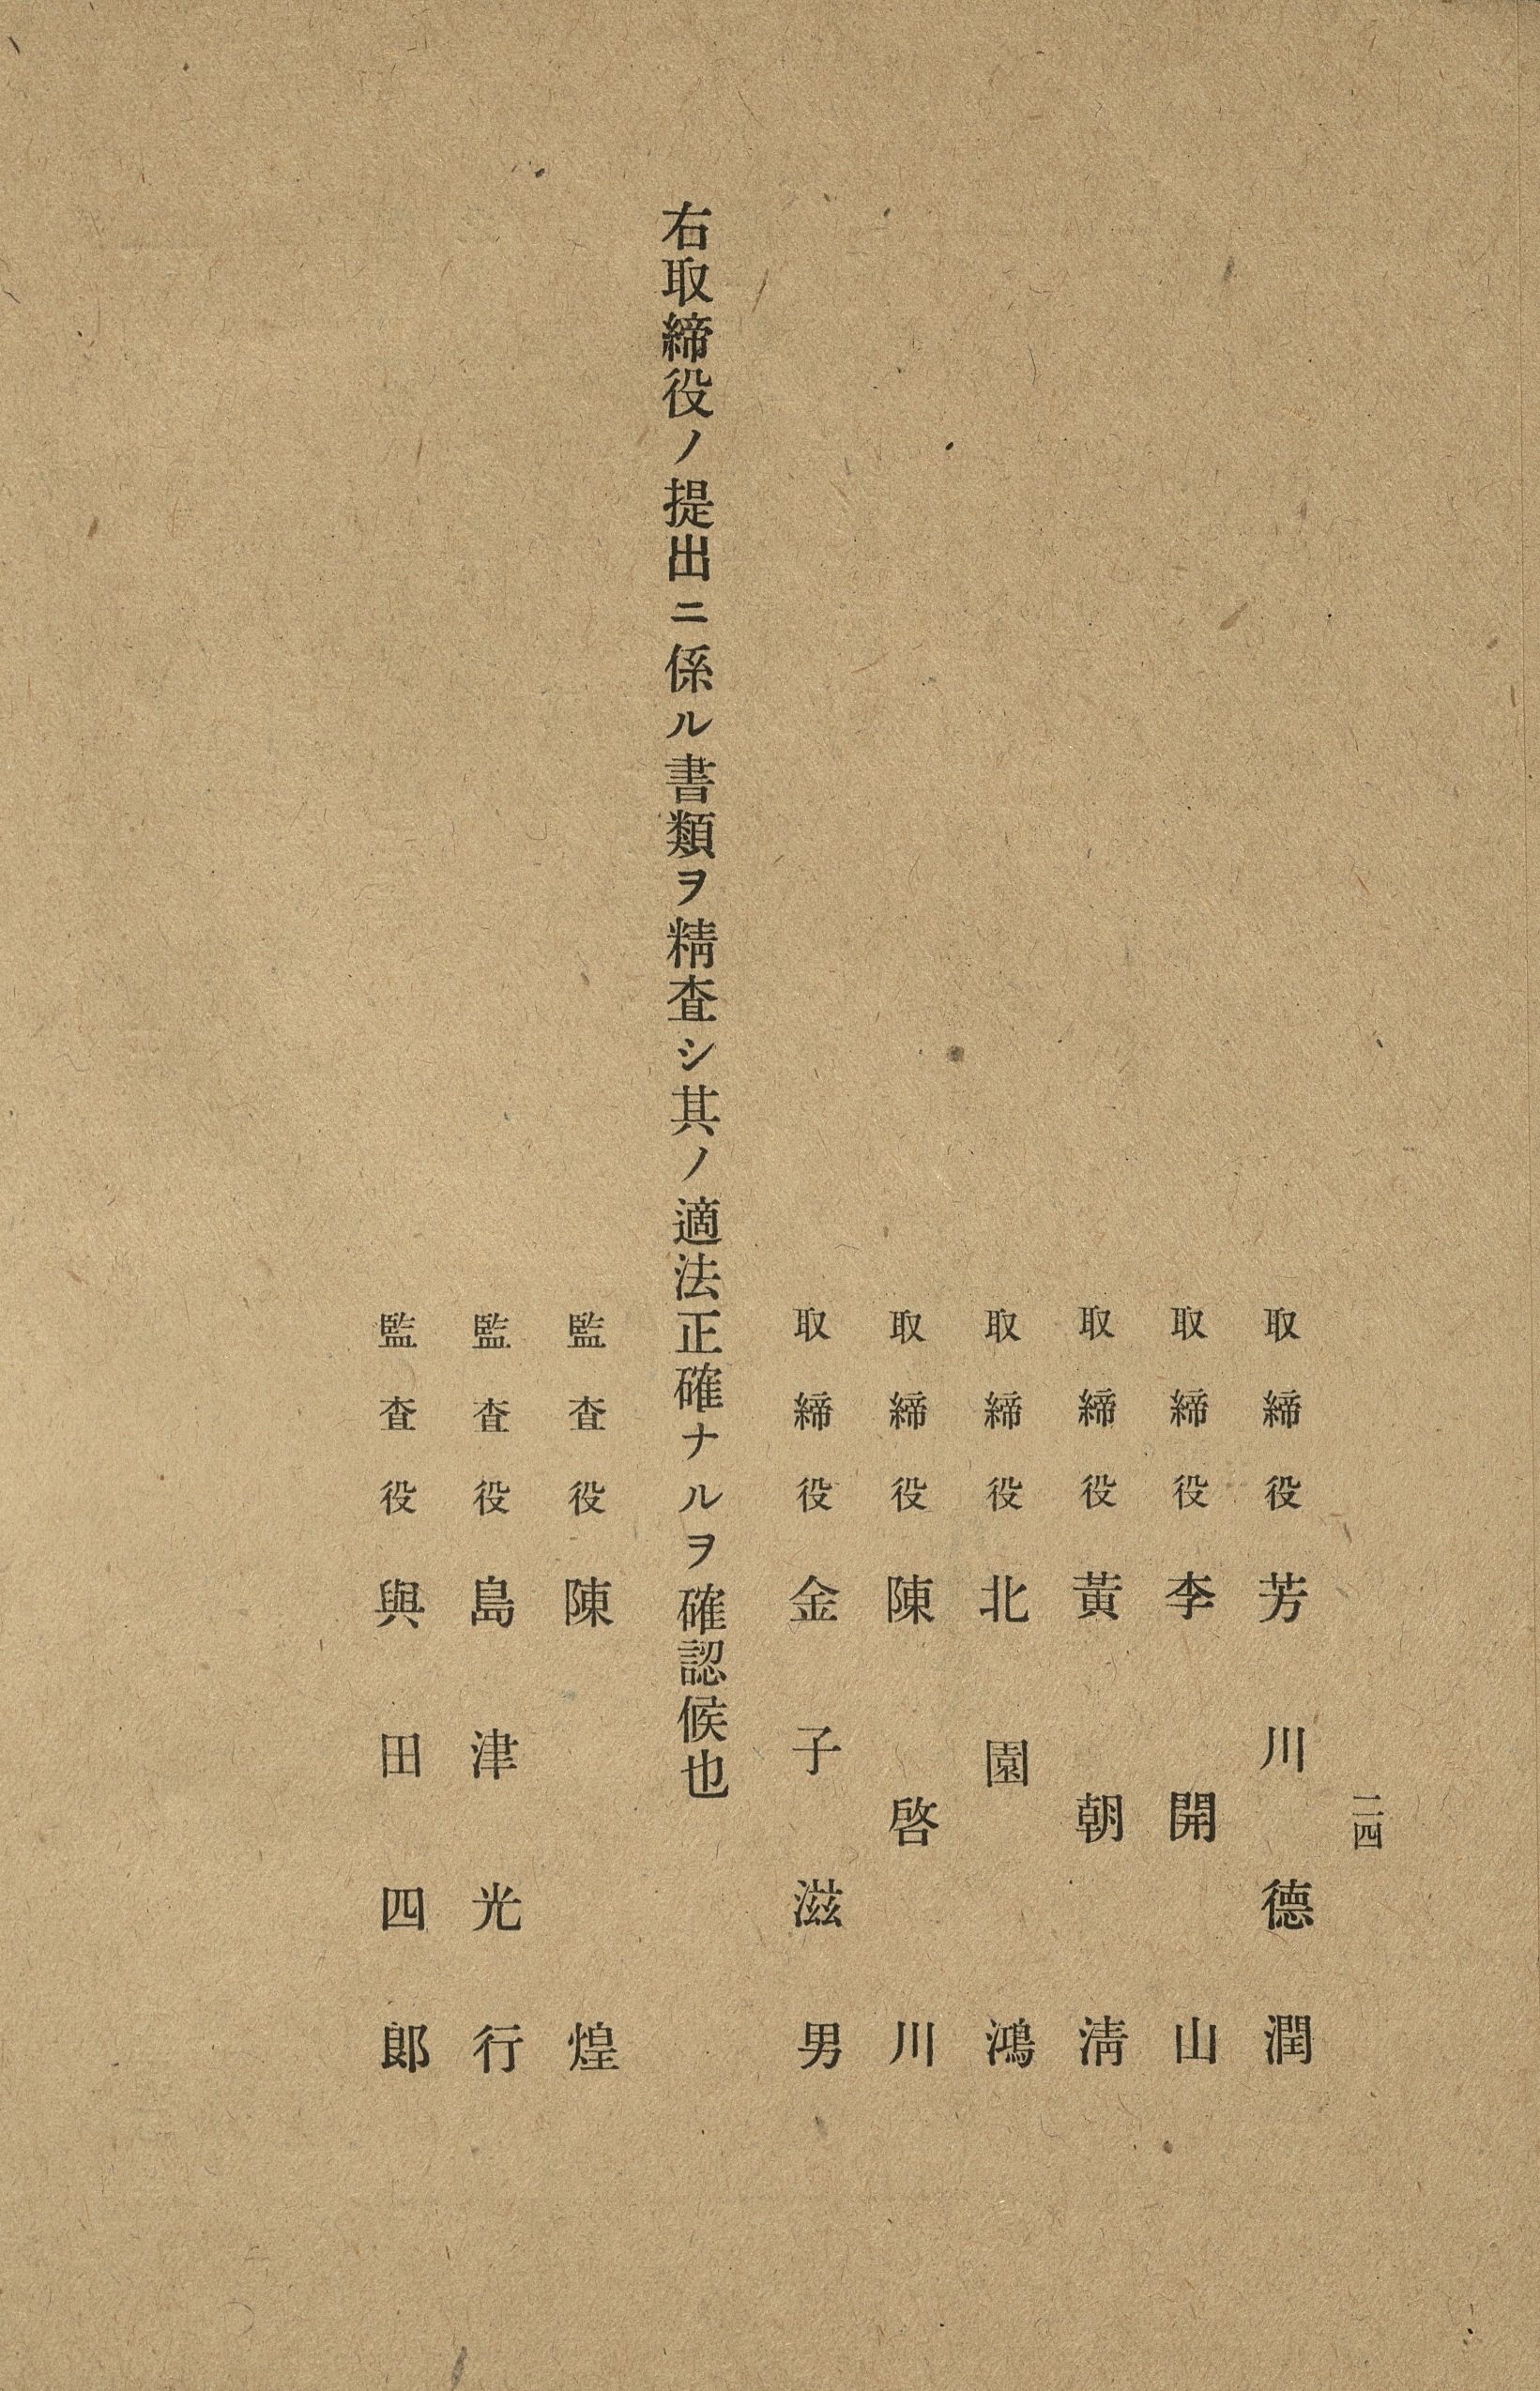 二四
取締役 芳川德潤
取締役 李開山
取締役 黃朝淸
取締役 北園鴻
取締役 陳啓川
取締役 金子滋男
右取締役ノ提出ニ係ル書類ヲ精査シ其ノ適法正確ナルヲ確認候也
監査役 陳煌
監査役 島津光行
監査役 與田四郞